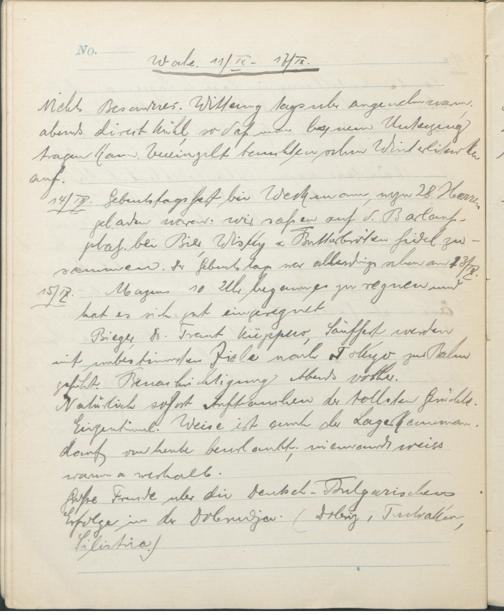 No.
Woche. 11/IX - 17/IX.
Nichts Besonderes. Witterung tagsüber angenehm warm,
abends direkt kühl, so daß man bequem Unterzeug
tragen kann. Vereinzelt tauchten schon Winterlitewken
auf.
14/IX. Geburtstagsfest bei Weckmann, wozu 28 Herren
geladen waren. wir saßen auf d.
platz bei Bier Wisky u Butterbröten fidel zu-
sammen. der Geburtstag war allerdings schon am 13/IX.
15/IX. Morgens 10 Uhr begann es zu regnen und
hat es sich gut eingeregnet
Bieger, Dr. Traut Küppers, Senffert werden
mit unbestimmtem Ziele nach Tokyo zur Bahn
geführt. Benachrichtigung Abends vorher.
Natürlich sofort Auftauchen der tollsten Gerüchte.
Eigentüml. Weise ist auch der Lagerkomman-
dant von heute beurlaubt, niemand weiss
warum u weshalb.
Große Freude über die Deutsch-Bulgarischen
Erfolge in der Dobrudja. (Dobriç, Tutrakan,
Silistria)